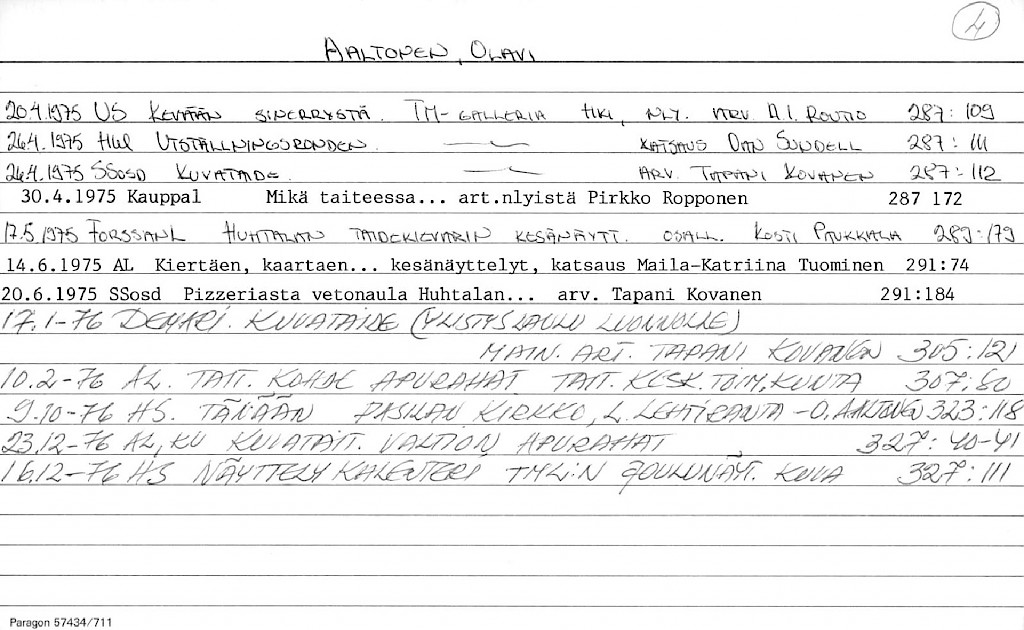 4
AALTONEN, OLAVI
20.4.1975 US KEVÄÄN SINERRYSTÄ. TM-GALLERIA HKI, NLY. ARV. A.I. ROUTIO 287:109
26.4.1975 Hbl UTSTÄLLNINGSRONDEN. —〃— KATSAUS DAN SUNDELL 287:111
26.4.1975 SSosd KUVATAIDE. —〃— ARV. TAPANI KOVANEN 287:112
30.4.1975 Kauppal Mikä taiteessa... art.nlyistä Pirkko Ropponen 287 172
17.5.1975 FORSSANL HUHTALAN TAIDEKIEVARIN KESÄNÄYTT. OSALL. KOSTI PAUKKALA 289:179
14.6.1975 AL Kiertäen, kaartaen... kesänäyttelyt, katsaus Maila-Katriina Tuominen 291:74
20.6.1975 SSosd Pizzeriasta vetonaula Huhtalan... arv. Tapani Kovanen 291:184
17.1-76 DEMARI. KUVATAIDE (YLISTYSLAULU LUONNOLLE)
MAIN. ART. TAPANI KOVANEN 305:121
10.2-76 AL. TAIT. KOHDE APURAHAT TAIT. KESK. TOIM, KUNTA 307:80
9.10-76 HS. TÄNÄÄN PASILAN KIRKKO, L. LEHTIRANTA - O. AALTONEN 323:118
23.12-76 AL, KU KUVATAIT. VALTION APURAHAT 327:40-41
16.12-76 HS NÄYTTELYKALENTERI TML:N JOULUNÄYT. KUVA 327:111
Paragon 57434/711